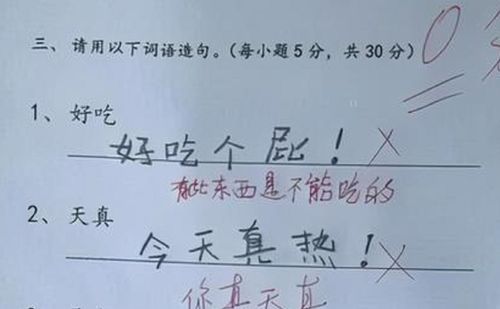 三、请用以下词语造句。（每小题5分，共30分）
0分
1、好吃
好吃个屁！
有些东西是不能吃的
2、天真
今天真热！
你真天真